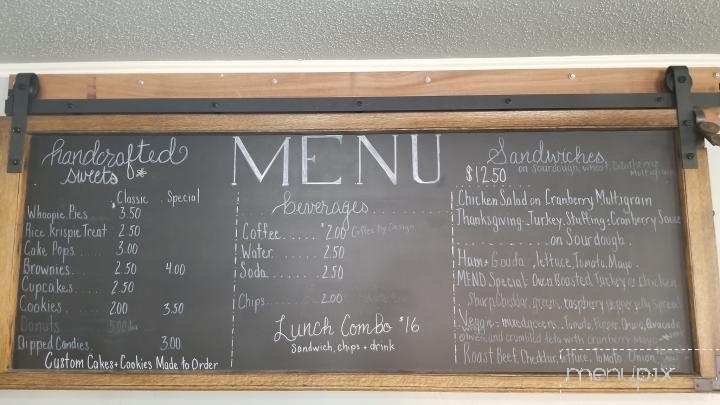 handcrafted
sweets
Classic Special
Whoopie Pies 3.50
Rice Krispie Treat 2.50
Cake Pops 3.00
Brownies 2.50 4.00
Cupcakes 2.50
Cookies 2.00 3.50
Donuts
Dipped Candies 3.00
Custom Cakes + Cookies Made to Order
MENU
beverages
Coffee $2.00 Coffee by Design
Water 2.50
Soda 2.50
Chips 2.00
Lunch Combo $16
Sandwich, chips + drink
Sandwiches
on sourdough, wheat, cranberry multigrain
$12.50
Chicken Salad on Cranberry Multigrain
Thanksgiving - Turkey, Stuffing + Cranberry Sauce
on Sourdough
Ham + Gouda lettuce, Tomato, Mayo
MEND Special Oven Roasted Turkey or Chicken
Sharp Cheddar, green, raspberry pepper jelly Special
Vegan - mixed greens, Tomato, Pepper, Onion, Avocado
and crumbled feta with cranberry Mayo
Roast Beef, Cheddar, lettuce, Tomato, Onion
menupix